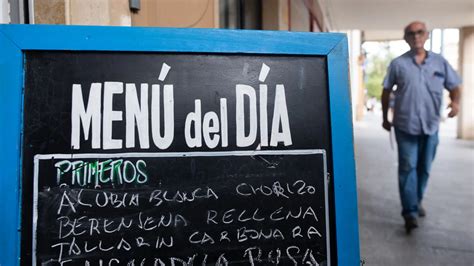 MENÚ del DÍA
PRIMEROS
ALUBIA BLANCA CHORIZO
BERENJENA RELLENA
TALLARIN CARBONARA
ENSALADILLA RUSA